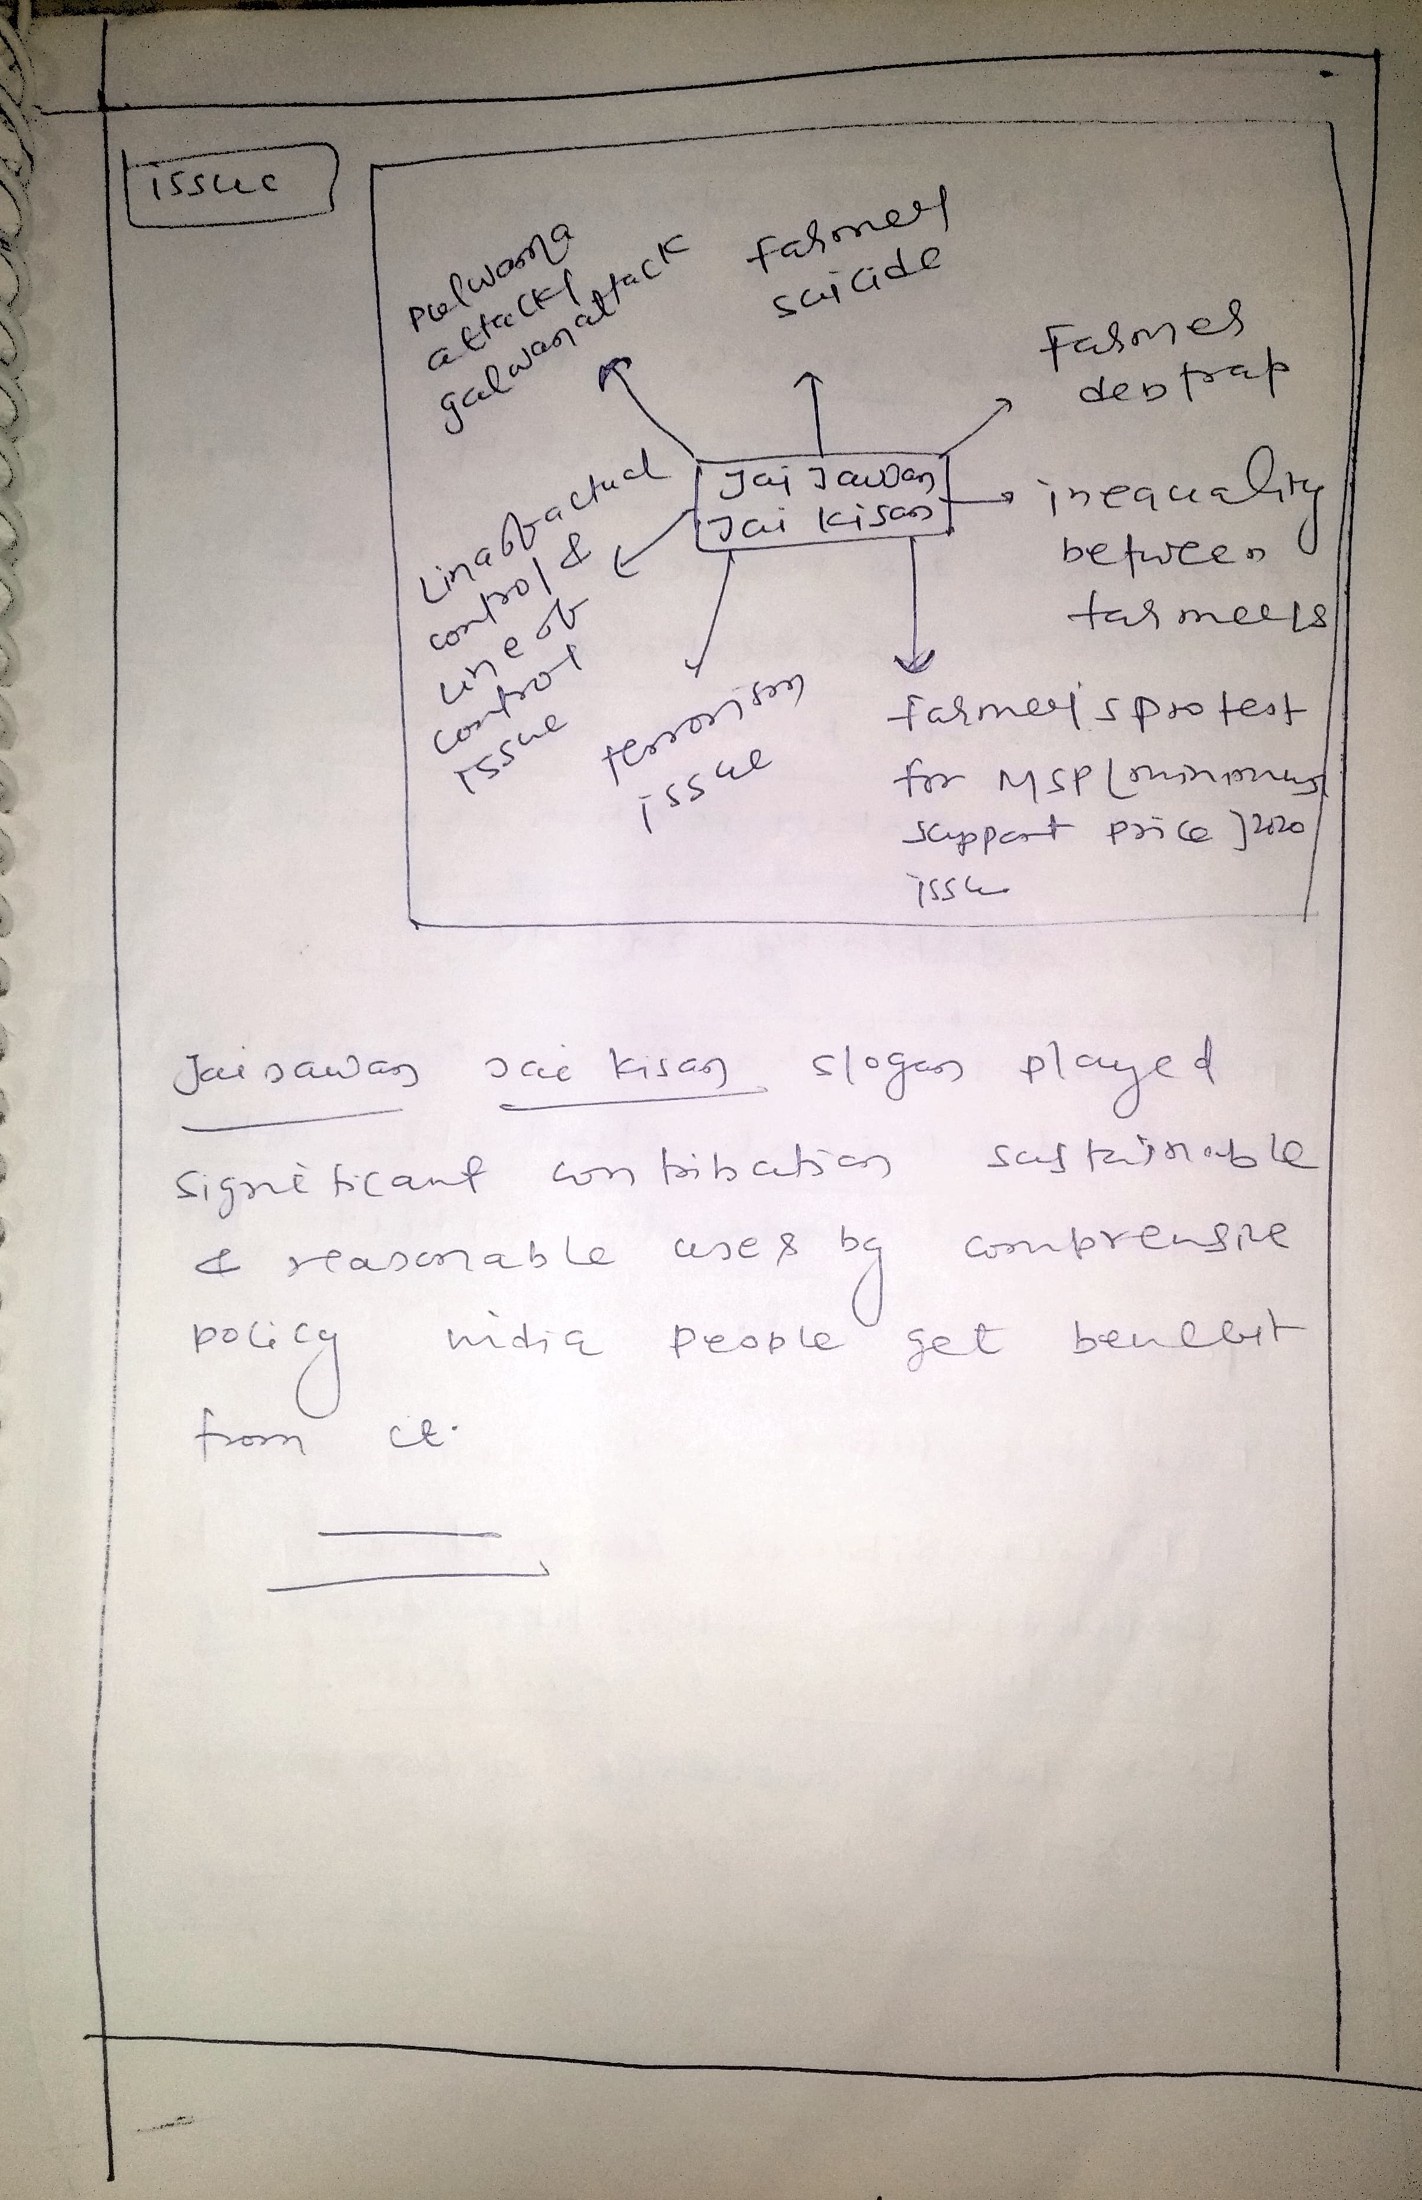 issue
pulwama
attack/
galwan attack
Farmer
suicide
Farmer
deb trap
Jai Jawan
Jai Kisan
inequality
between
farmers
Line of actual
control &
Line of
control
issue
terrorism
issue
Farmer's protest
for MSP [minimum
support price] 2020
issue
Jai Jawan Jai Kisan slogan played
significant contribution sustainable
& reasonable uses by comprensive
policy india people get benefit
from it.